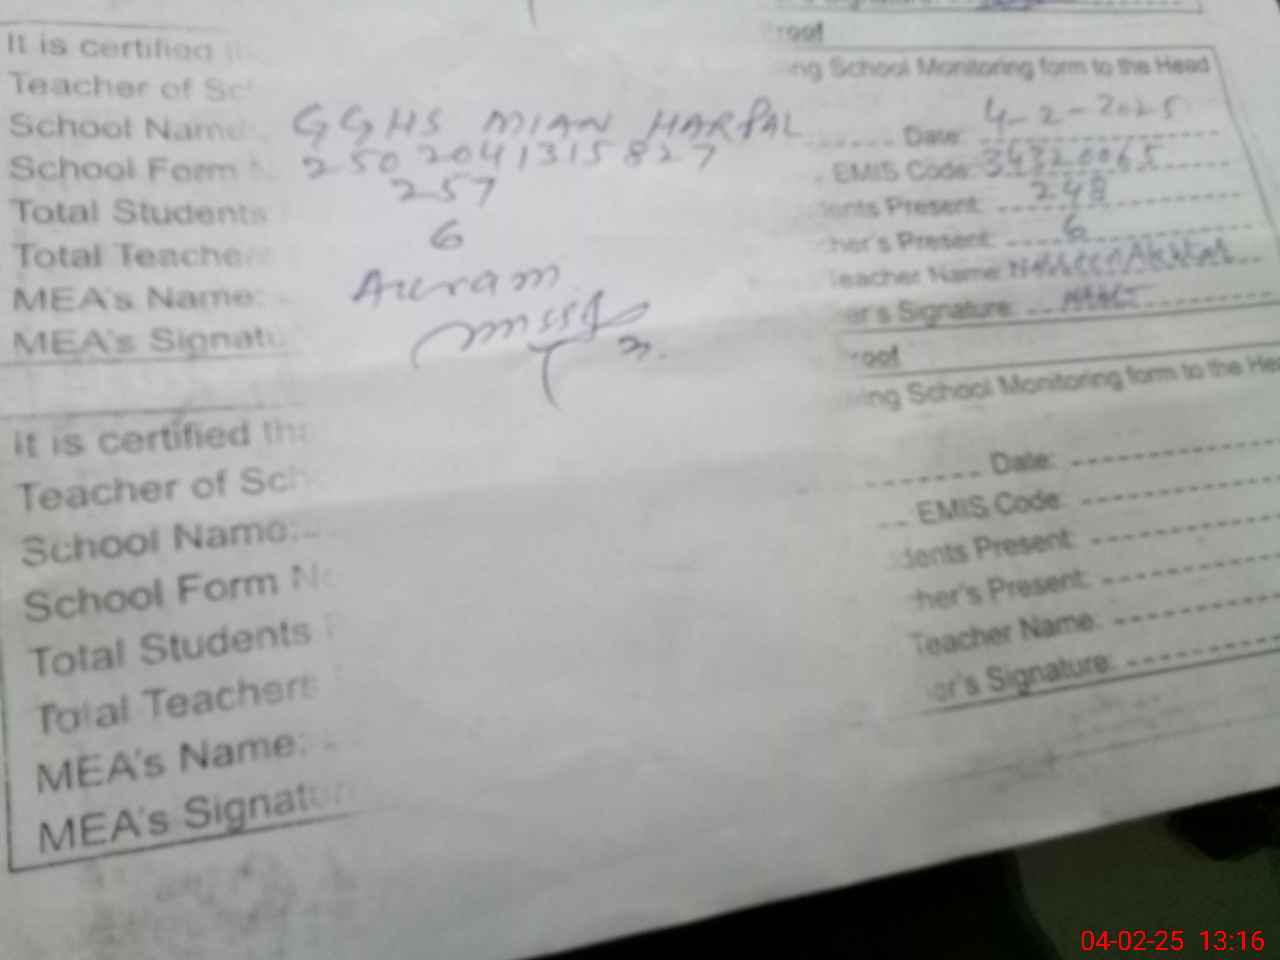 It is certified
roof
ing School Monitoring form to the Head
Teacher of Sc
School Name GGHS MIAN HARPAL Date: 4-2-2025
School Form 2502041315827 EMIS Code: 34320065
Total Students 257 dents Present: 248
Total Teacher 6 her's Present: 6
MEA's Name: Teacher Name: Akhtar
MEA's Signatu er's Signature:
roof
It is certified tha ing School Monitoring form to the Hea
Teacher of Sch
School Name: Date:
School Form No EMIS Code:
Total Students P dents Present:
Total Teachers her's Present:
MEA's Name: Teacher Name:
MEA's Signatur er's Signature:
04-02-25 13:16